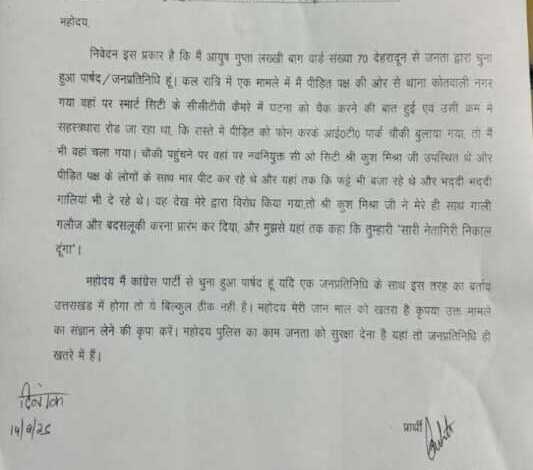 महोदय,
निवेदन इस प्रकार है कि मैं आयुष गुप्ता लख्खी बाग वार्ड संख्या 70 देहरादून से जनता द्वारा चुना
हुआ पार्षद/जनप्रतिनिधि हूं। कल रात्रि में एक मामले में मैं पीड़ित पक्ष की ओर से थाना कोतवाली नगर
गया वहां पर स्मार्ट सिटी के सीसीटीवी कैमरे में घटना को चैक करने की बात हुई एवं उसी क्रम में
सहस्त्रधारा रोड जा रहा था, कि रास्ते में पीड़ित को फोन करके आई0टी0 पार्क चौकी बुलाया गया, तो मैं
भी वहां चला गया। चौकी पहुंचने पर वहां पर नवनियुक्त सी ओ सिटी श्री कुश मिश्रा जी उपस्थित थे और
पीड़ित पक्ष के लोगों के साथ मार पीट कर रहे थे और यहां तक कि फट्टे भी बजा रहे थे और भददी भददी
गालियां भी दे रहे थे। यह देख मेरे द्वारा विरोध किया गया,तो श्री कुश मिश्रा जी ने मेरे ही साथ गाली
गलौज और बदसलूकी करना प्रारंभ कर दिया, और मुझसे यहां तक कहा कि तुम्हारी "सारी नेतागिरी निकाल
दूंगा"।
महोदय मैं कांग्रेस पार्टी से चुना हुआ पार्षद हूं यदि एक जनप्रतिनिधि के साथ इस तरह का बर्ताव
उत्तराखंड में होगा तो ये बिल्कुल ठीक नही है। महोदय मेरी जान माल को खतरा है कृपया उक्त मामले
का संज्ञान लेने की कृपा करें। महोदय पुलिस का काम जनता को सुरक्षा देना है यहां तो जनप्रतिनिधि ही
खतरे में हैं।
दिनांक
प्रार्थी